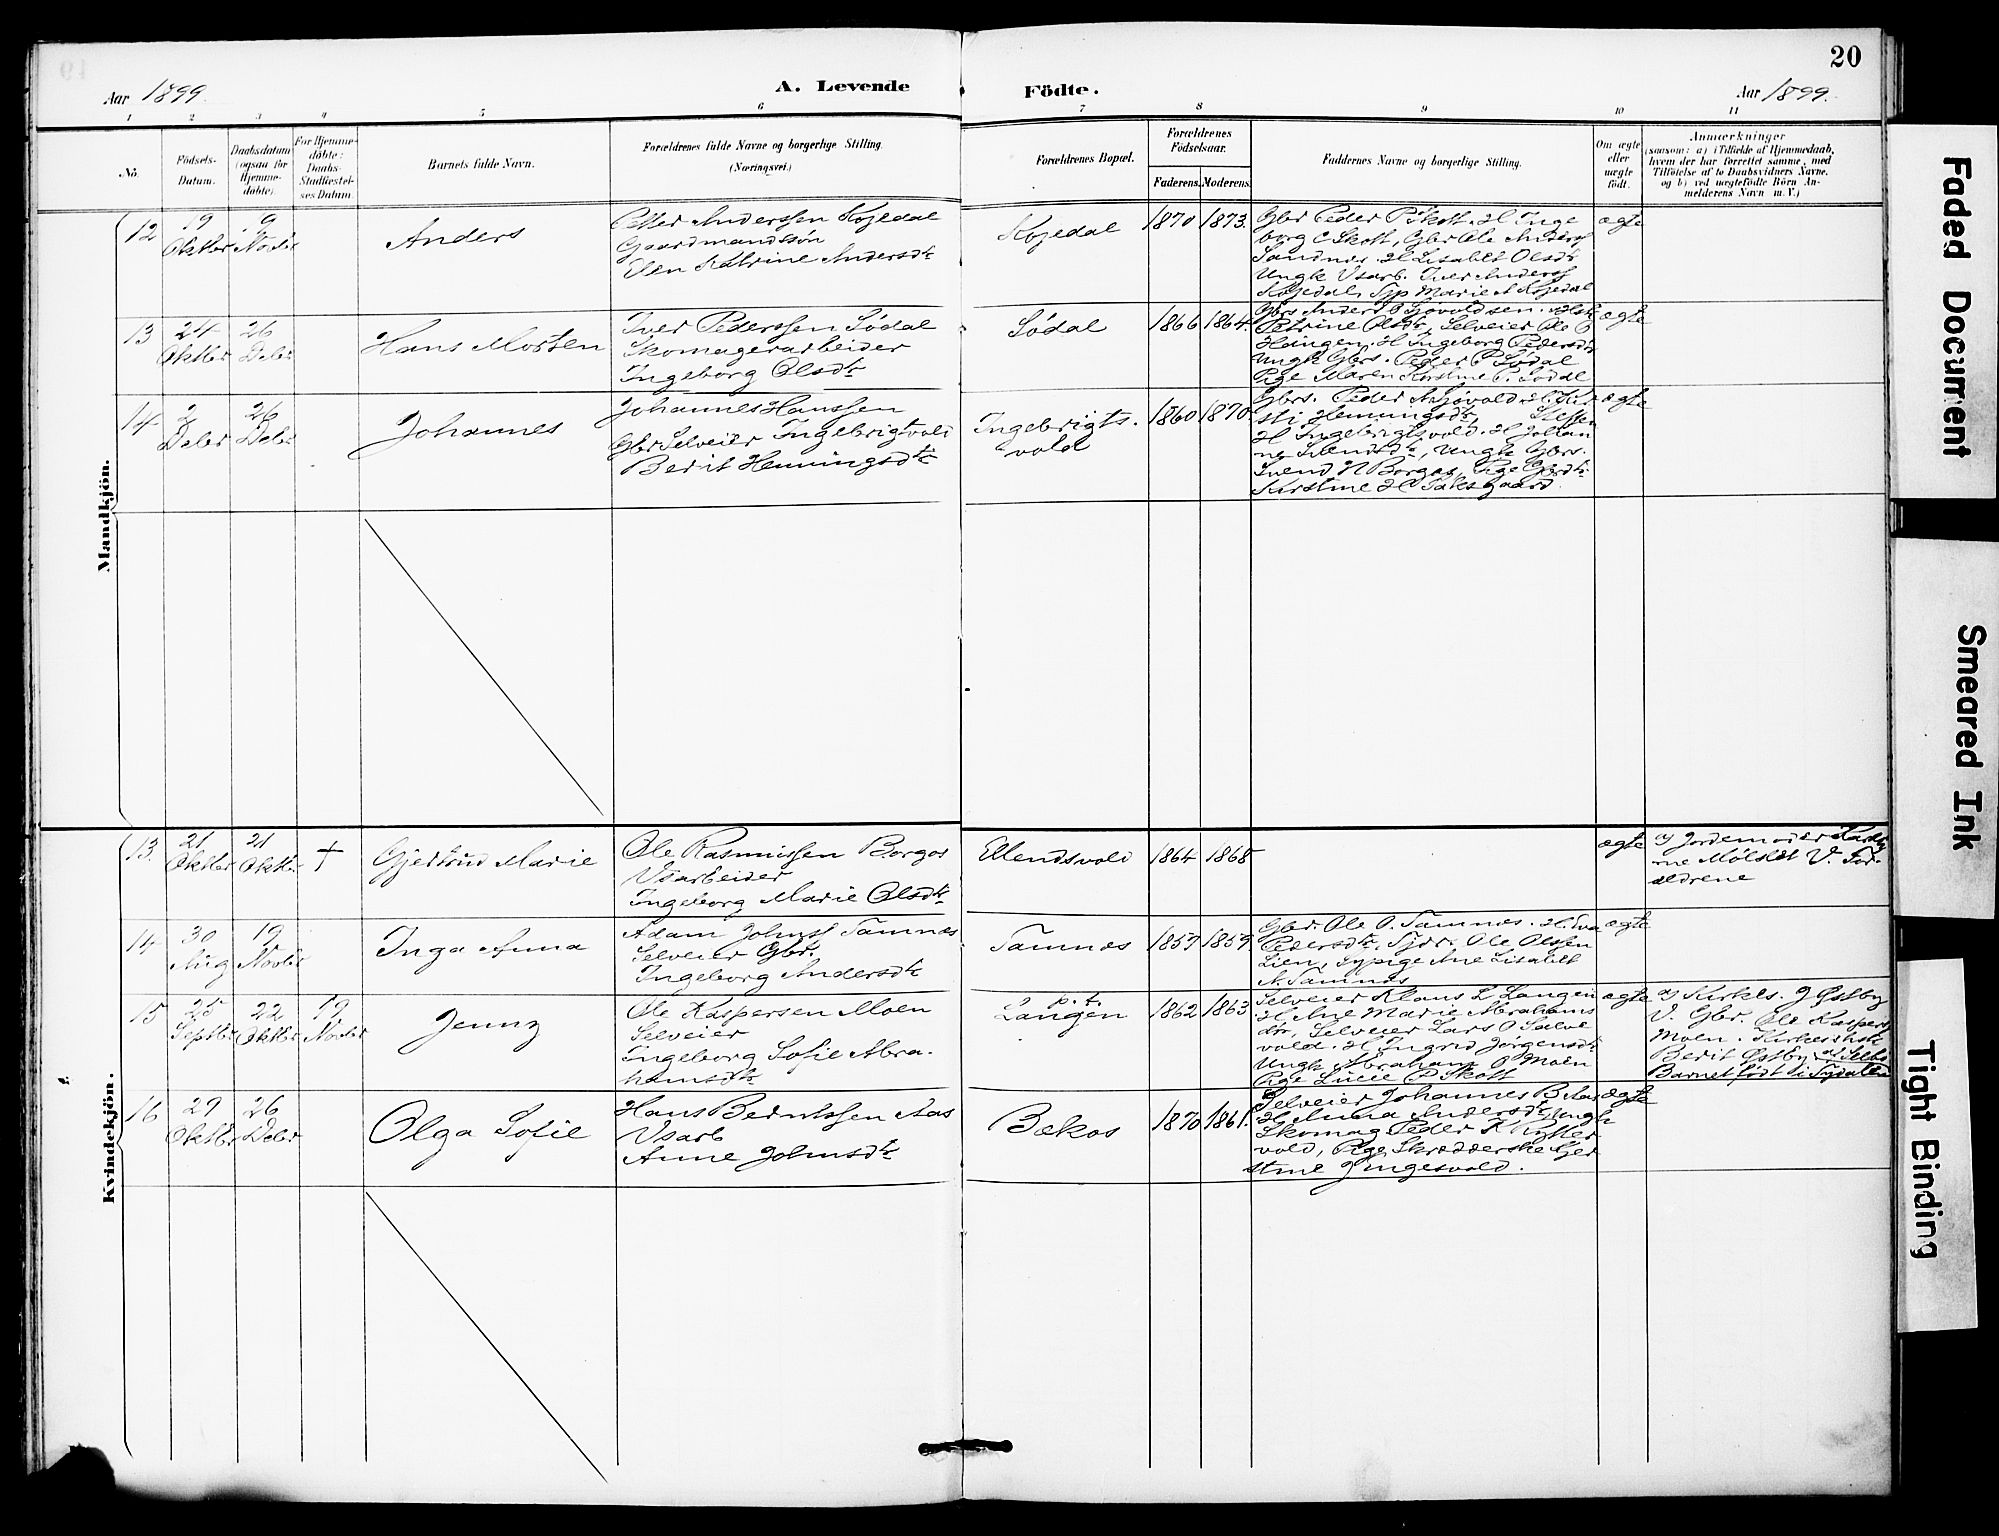 20
Aar 1899.
A. Levende Födte.
Aar 1899.
1 2 3 4 5 6 7 8 9 10 11
No.
Födsels-
Datum.
Daabsdatum
(ogsaa for
Hjemme-
döbte).
For Hjemme-
döbte:
Daabs-
Stadfæstel-
ses Datum.
Barnets fulde Navn.
Forældrenes fulde Navne og borgerlige Stilling.
(Næringsvei.)
Forældrenes Bopæl.
Forældrenes
Födselsaar.
Faderens. Moderens.
Faddernes Navne og borgerlige Stilling.
Om ægte
eller
uægte
födt.
Anmærkninger
(saasom: a) i Tilfælde af Hjemmedaab,
hvem der har forrettet samme, med
Tilföielse af to Daabsvidners Navne,
og b) ved uægtefödte Börn An-
melderens Navn m. V.)
Mandkjön.
12
19
Oktbr
9
Novbr
Anders
Petter Anderssen Kojedal
Gaardmandssön
Katrine Andersdtr
Kojedal
1870 1873.
Gbr Peder P Skott. H Inge
borg C Skott, Gbr Ole Anders
Sandnes. H Lisabet Olsdtr
Ungk Vsarb. Iver Anders
Kojedal, Marie A Kojedal
ægte
13
24
Oktbr
26
Debr
Hans Morten
Iver Pederssen Södal
Skomagerarbeider
Ingeborg Olsdtr
Södal
1866 1864.
Gbrs Anders O Sjovoldsen.
Petrine Olsdtr, Selveier Ole O
Haugen. H Ingeborg Pedersdtr
Ungk Gbrs. Peder P Södal
Pige Maren Kirstine P. Södal
ægte
14
2
Debr
26
Debr
Johannes
Johannes Hanssen
Gbr Selveier Ingebrigtvold
Berit Henningsdtr
Ingebrigts.
vold
1860 1870.
Gbrs. Peder A Sjövold. H Kir
sti Henningsdtr, Steffen
H Ingebrigtsvold. H Johan
ne Svendsdtr, Ungk Gbrs.
Svend N Borgos, Pige
Kirstine H Taksgaard.
ægte
Kvindekjön.
13.
21
Oktbr
21
Oktbr
†
Gjertrud Marie
Ole Rasmussen Borgos
Vsarbeider
Ingeborg Marie Olsdtr
Ellendsvold
1864 1868
ægte
a) Jordemoder
ne Mölslet V. For-
ældrene
14
30
Aug
19
Novbr
Inga Anna
Adam Johnss Tamnes
Selveier Gbr.
Ingeborg Andersdtr
Tamnes
1857 1859.
Gbr. Ole O. Tamnes. H. Eva
Pedersdtr, Ole Olssen
Lien, Sypige Ane Lisabet
A. Tamnes
ægte
15
25
Septbr
22
Oktbr
19
Novbr
Jenny
Ole Kaspersen Moen
Selveier
Ingeborg Sofie Abra.
hamsdtr
p. t.
Langen
1862 1863.
Selveier Klaus L Langen
H Ane Marie Abrahams
dtr, Selveier Lars O Salve
vold. H Ingrid Jörgensdtr
Ungk Abraham O Moen
Pige Lucie P Skott
ægte
a) Kirkes. J Östby
V. Gbr. Ole Kaspers
Moen.
Berit Östby
Barnet födt i Tydalen
16
29
Oktbr
26
Debr
Olga Sofie
Hans Berntssen Aas
Vsarb
Anne Johnsdtr
Bekos
1870 1861.
Selveier Johannes B Aas
H Anna Andersdtr, Ungk
Skomag Peder K Rotter
vold, Pige Skrædderske Gjer
stine J Ingesvold.
ægte
Faded Document
Smeared Ink
Tight Binding